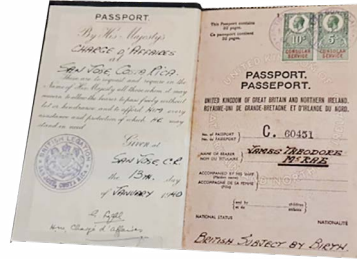 PASSPORT.
By His Majesty's
CHARGÉ D'AFFAIRES
at
SAN JOSE, COSTA RICA.
These are to request and require in the
Name of His Majesty all those whom it may
concern to allow the bearer to pass freely without
let or hindrance and to afford him every
assistance and protection of which he may
stand in need.
Given at
SAN JOSE, C.R.
the 13th day
of JANUARY 1940
Chargé d'affaires
This Passport contains
32 pages.
Ce passeport contient
32 pages.
10/-
5/-
CONSULAR
SERVICE
CONSULAR
SERVICE
PASSPORT.
PASSEPORT.
UNITED KINGDOM OF GREAT BRITAIN AND NORTHERN IRELAND.
ROYAUME-UNI DE GRANDE-BRETAGNE ET D'IRLANDE DU NORD.
No. of PASSPORT
No. du PASSEPORT
C. 60451
NAME OF BEARER
NOM DU TITULAIRE
JAMES THEODORE
McRAE
ACCOMPANIED BY HIS WIFE
(Maiden name)
ACCOMPAGNÉ DE SA FEMME
(Née)
and by
et de
children
enfants
NATIONAL STATUS
NATIONALITÉ
BRITISH SUBJECT BY BIRTH.